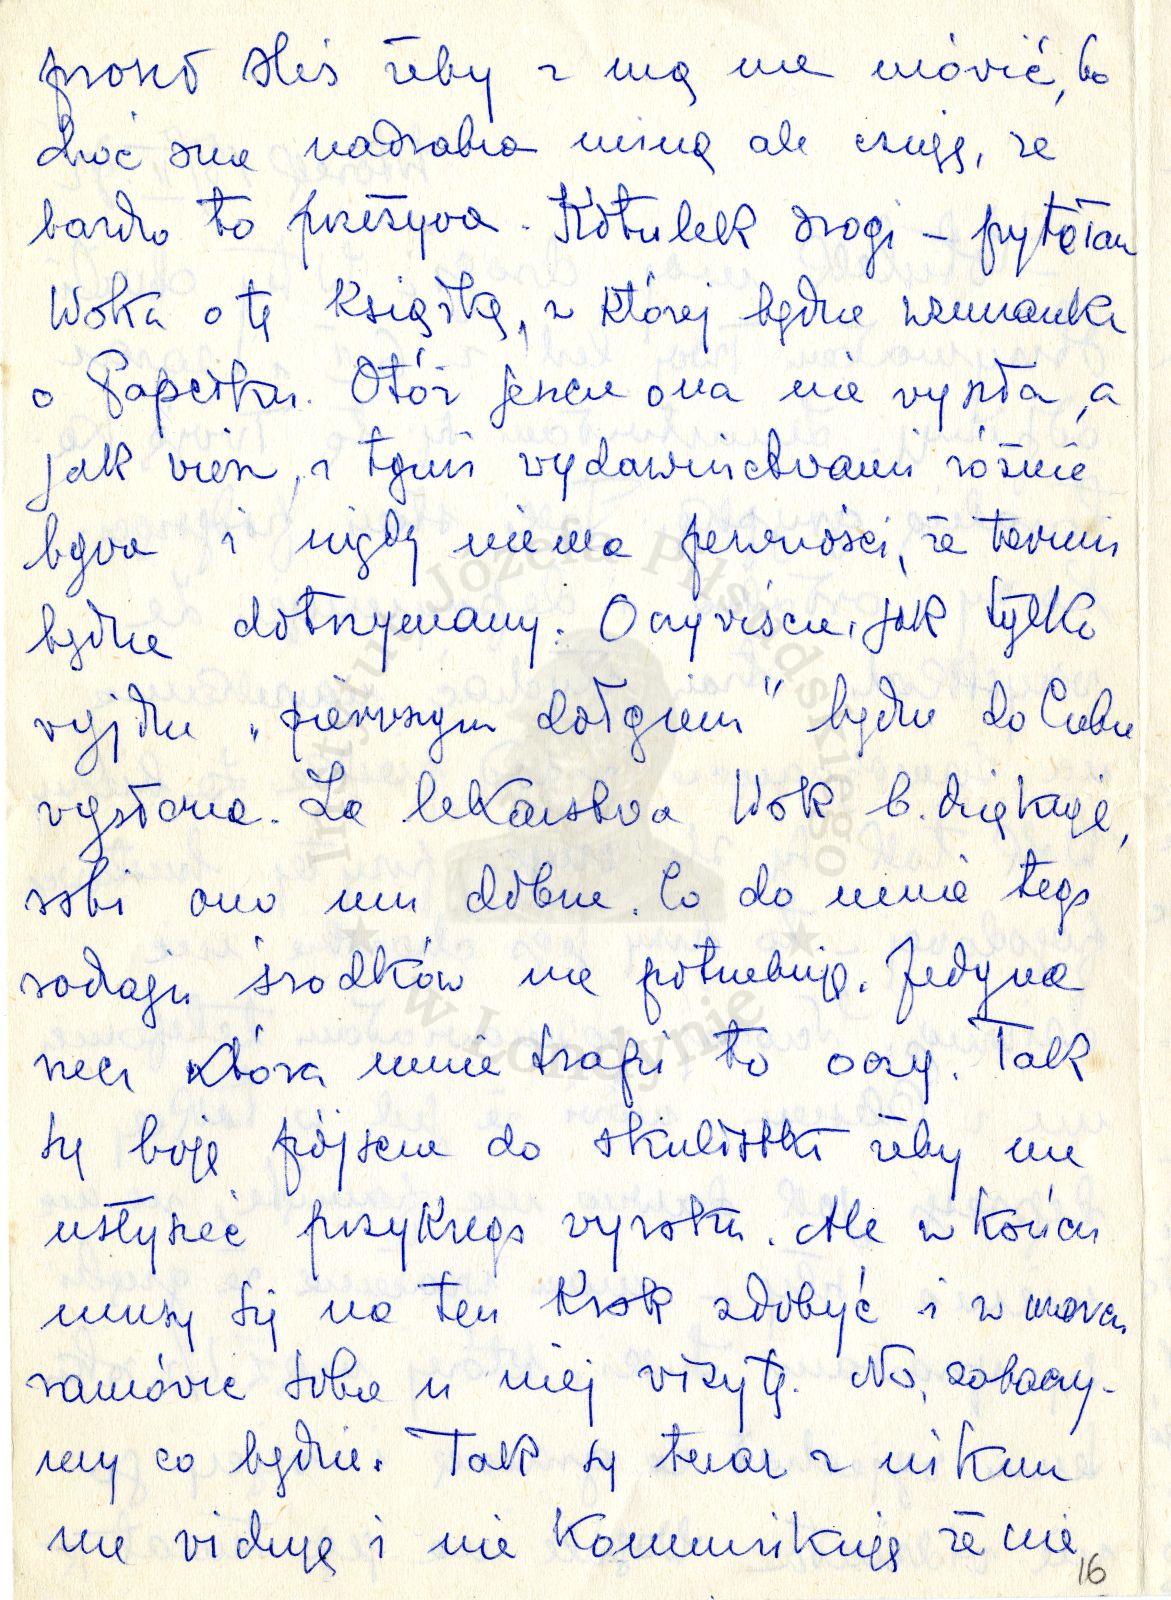 prosił Aliś żeby z nią nie mówić, bo
choć ona nadrabia miną ale czuję, że
bardzo to przeżywa. Kotulek drogi – pytałam
Woka o tę książkę, w której będzie wzmianka
o Papciku. Otóż jeszcze ona nie wyszła, a
jak wiesz, z tymi wydawnictwami różnie
bywa i nigdy nie ma pewności, że termin
będzie dotrzymany. Oczywiście, jak tylko
wyjdzie „pierwszym dołgiem" będzie do Ciebie
wysłana. Za lekarstwa Wok b. dziękuje,
robi ono mu dobrze. Co do mnie tego
rodzaju środków nie potrzebuję. Jedyna
rzecz która mnie trapi to oczy. Tak
się boję pójście do okulistki żeby nie
usłyszeć przykrego wyroku. Ale w końcu
muszę się na ten krok zdobyć i w marcu
zamówić sobie u niej wizytę. No, zobaczy-
my co będzie. Tak się teraz z nikim
nie widuję i nie komunikuję że nie
16
Instytut Józefa Piłsudskiego
w Londynie